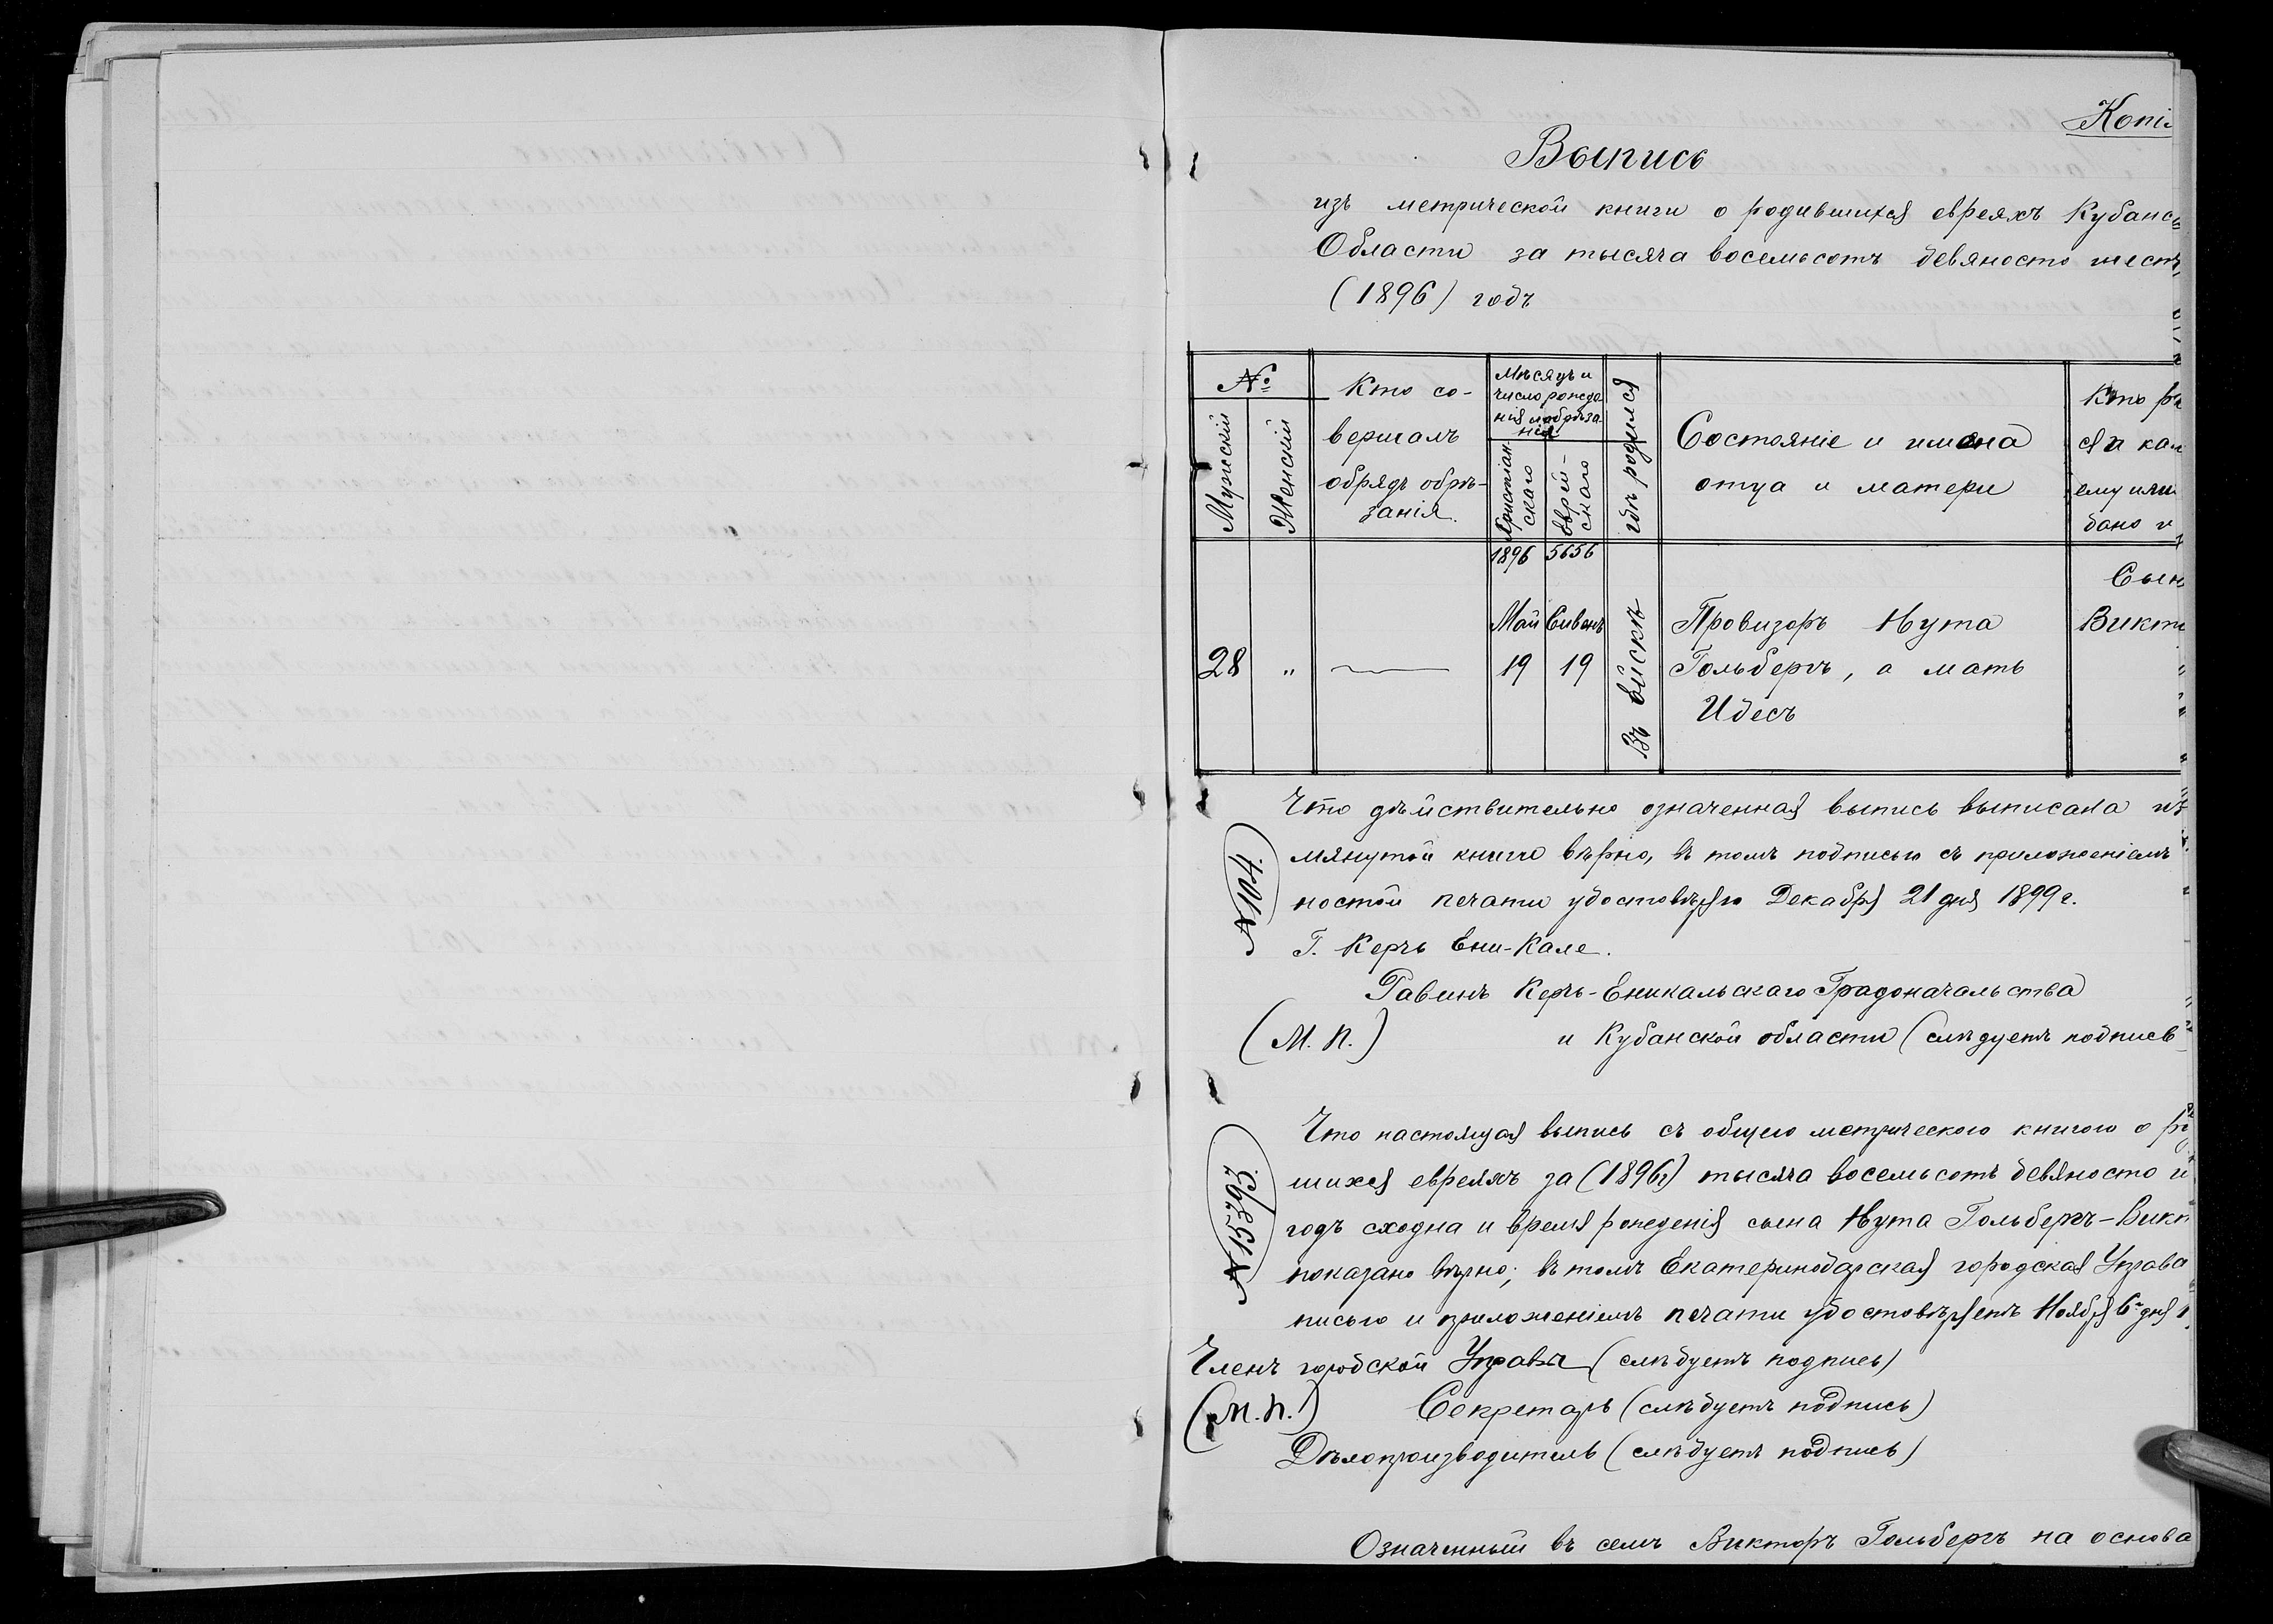 Копі
Выпись
изъ метрической книги о родившихся евреяхъ Кубанс
Области за тысяча восемьсотъ девяносто шест
(1896) годъ
№
Мужскій
Женскій
Кто со-
вершалъ
обрядъ обрѣ-
занія.
Мѣсяцъ и
число рожде-
нія и обрѣза-
нія
Христіан
скаго
Еврей-
скаго
Гдѣ родился
Состояніе и имена
отца и матери
Кто ро
ся и как
ему или
дано и
1896 5656
Май Сиванъ
28 " — 19 19
Въ Ейскѣ
Провизоръ Нута
Гольбергъ, а мать
Идесъ
Сын
Викт
Что дѣйствительно означенная выпись выписана из
мянутой книги вѣрно, въ томъ подписью съ приложеніемъ
ностой печати удостовѣряю Декабря 21 дня 1899 г.
Г. Керчь Ени-Кале.
№ 401
Равинъ Керчь-Еникальскаго Градоначальства
(М. П.) и Кубанской области (слѣдуетъ подпись
Что настоящая выпись съ общего метрического книгою о ро
шихся евреяхъ за (1896 г) тысяча восемьсотъ девяносто ш
годъ сходна и время рожденія сына Нута Гольбергъ-Викт
показано вѣрно; въ томъ Екатеринодарская городская Управа
писью и приложеніемъ печати удостовѣряетъ Ноября 6 дня 1
№ 15793
Членъ городской Управы (слѣдуетъ подпись)
(М. П.) Секретарь (слѣдуетъ подпись)
Дѣлопроизводитель (слѣдуетъ подпись)
Означенный въ семъ Викторъ Гольбергъ на основа